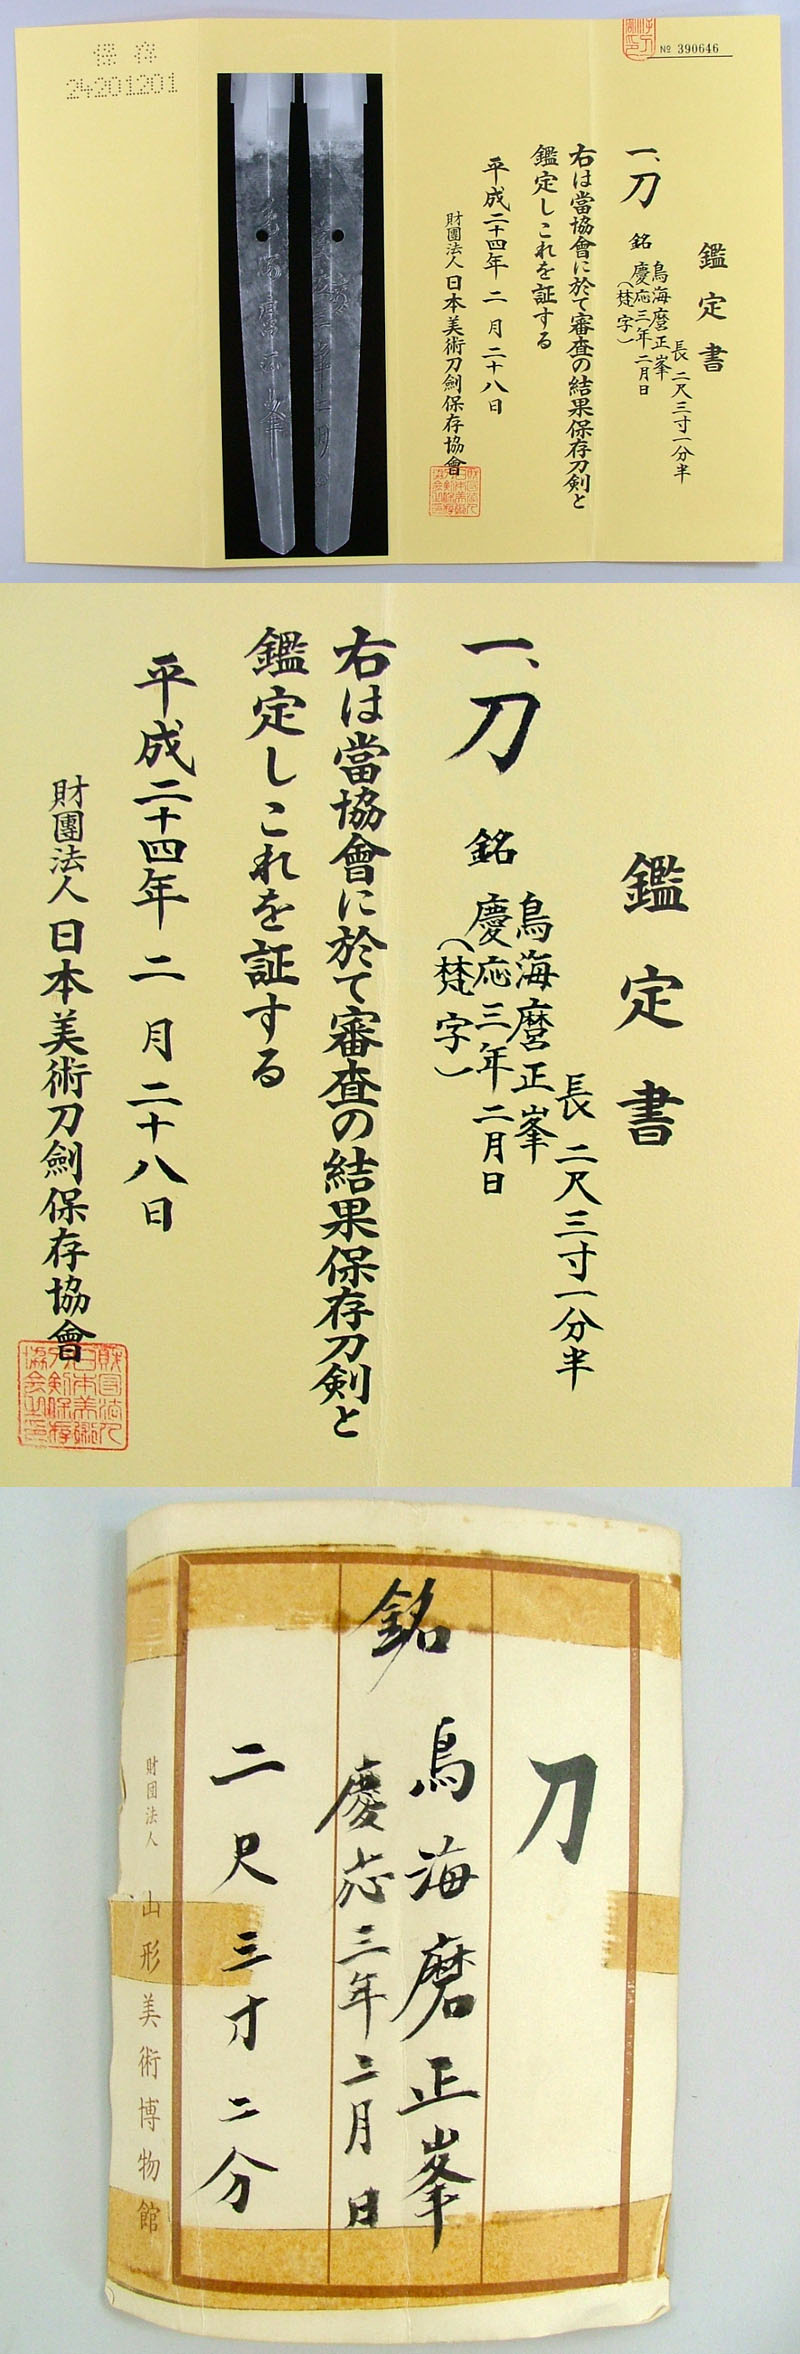 保存
24201201
№ 390646
鑑定書
一、刀
銘
鳥海麿正峯
慶応三年二月日
(梵字)
長 二尺三寸一分半
右は當協會に於て審査の結果保存刀剣と
鑑定しこれを証する
平成二十四年 二月 二十八日
財團法人 日本美術刀劍保存協會
鑑定書
一、刀
銘
鳥海麿正峯
慶応三年二月日
(梵字)
長 二尺三寸一分半
右は當協會に於て審査の結果保存刀剣と
鑑定しこれを証する
平成二十四年 二月 二十八日
財團法人 日本美術刀劍保存協會
刀
銘
鳥海磨正峯
慶応三年二月日
二尺三寸二分
財団法人 山形美術博物館